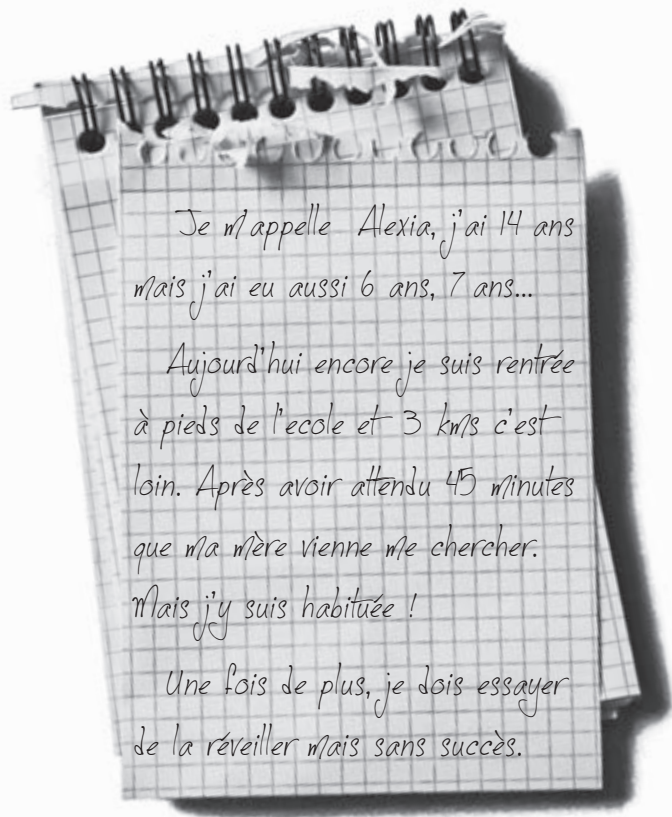 Je m'appelle Alexia, j'ai 14 ans
mais j'ai eu aussi 6 ans, 7 ans...
Aujourd'hui encore je suis rentrée
à pieds de l'ecole et 3 kms c'est
loin. Après avoir attendu 45 minutes
que ma mère vienne me chercher.
Mais j'y suis habituée !
Une fois de plus, je dois essayer
de la réveiller mais sans succès.